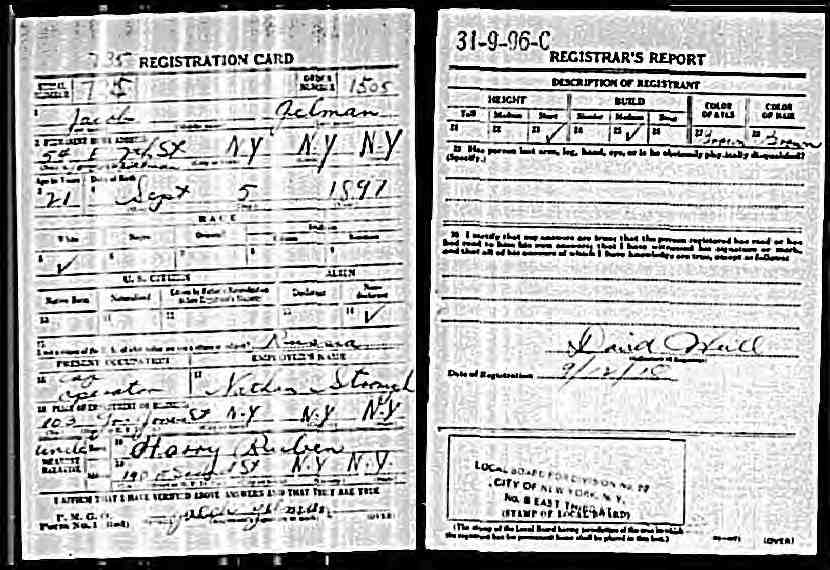 735 REGISTRATION CARD
SERIAL NUMBER 735 ORDER NUMBER 1505
1 Jacob Gelman
2 PERMANENT HOME ADDRESS
54 E St N.Y N.Y N.Y
Age in Years Date of Birth
21 Sept 5 1897
RACE
White Negro Oriental Indian
Citizen Noncitizen
5 ✓ 6 7 8 9
U. S. CITIZEN ALIEN
Native Born Naturalized Citizen by Father's Naturalization Before Registrant's Majority Declarant Non-declarant
10 11 12 13 14 ✓
15
If not a citizen of the U. S., of what nation are you a citizen or subject? Russia
PRESENT OCCUPATION EMPLOYER'S NAME
16 Cap operator 17 Nathan
18 PLACE OF EMPLOYMENT OR BUSINESS
103 St N.Y N.Y N.Y
uncle
NEAREST RELATIVE
Name 19 Harry Ruben
Address 20 190 E St N.Y N.Y
I AFFIRM THAT I HAVE VERIFIED ABOVE ANSWERS AND THAT THEY ARE TRUE
P. M. G. O.
Form No. 1 (Red) Jacob Gelman (OVER)
31-9-96-C
REGISTRAR'S REPORT
DESCRIPTION OF REGISTRANT
HEIGHT BUILD COLOR OF EYES COLOR OF HAIR
Tall Medium Short Slender Medium Stout
21 22 23 ✓ 24 25 ✓ 26 27 Brown 28 Brown
29 Has person lost arm, leg, hand, eye, or is he obviously physically disqualified?
(Specify.)
30 I certify that my answers are true; that the person registered has read or has
had read to him his own answers; that I have witnessed his signature or mark,
and that all of his answers of which I have knowledge are true, except as follows:
David
Date of Registration 9/12/18
LOCAL BOARD FOR DIVISION NO.
CITY OF NEW YORK, N. Y.
No. EAST
(STAMP OF LOCAL BOARD)
(The stamp of the Local Board having jurisdiction of the area in which
the registrant has his permanent home shall be placed in this box.)
(OVER)